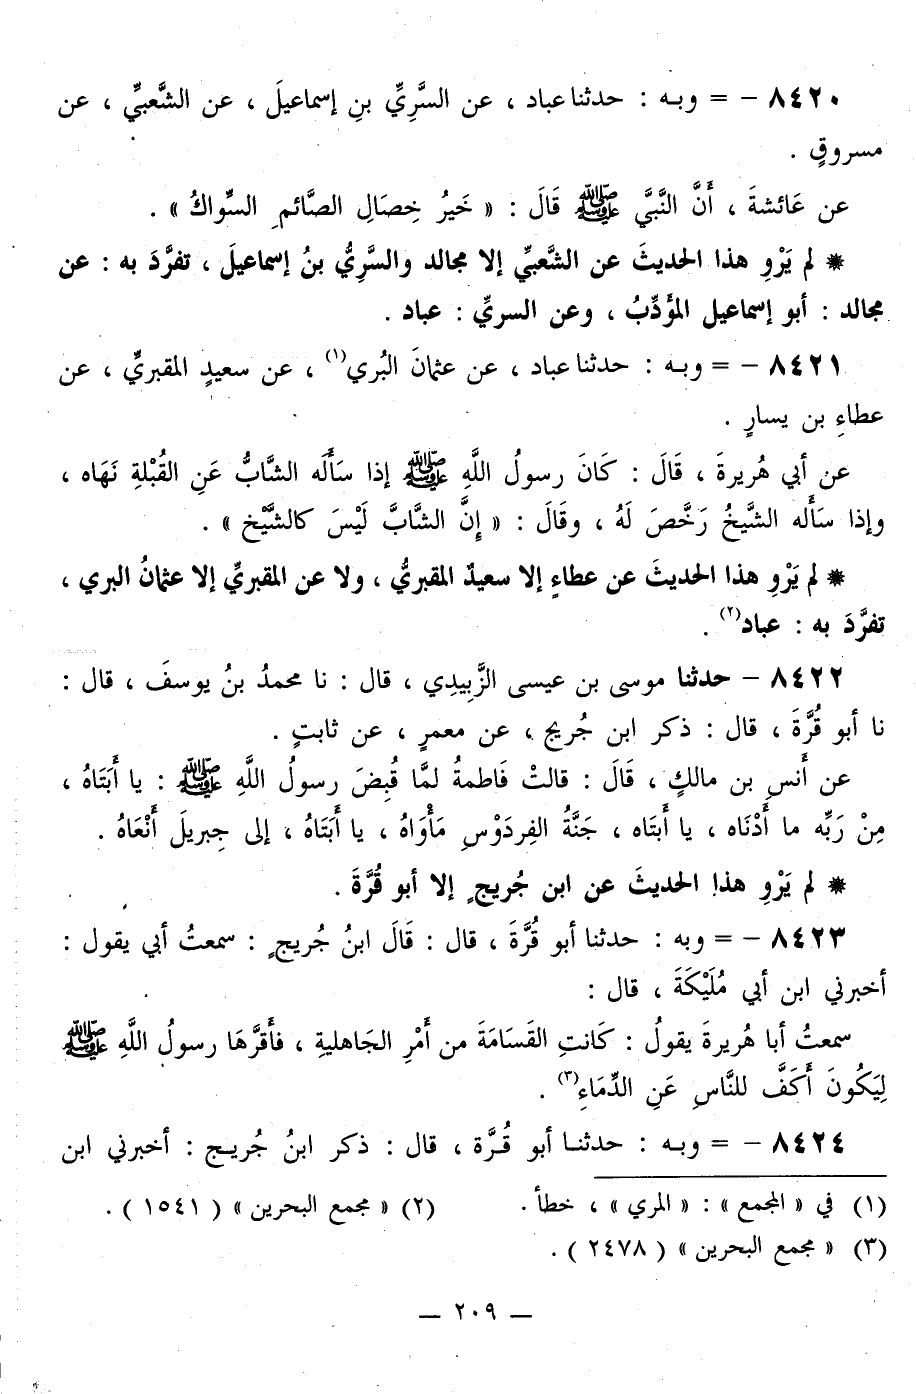 ٨٤٢٠ – = وبـه : حدثنا عباد ، عن السَّرِيِّ بنِ إسماعيلَ ، عن الشَّعبيِّ ، عن
مسروقٍ .
عن عَائشةَ ، أَنَّ النَّبيَّ ﷺ قَالَ : « خَيرُ خِصَالِ الصَّائمِ السِّواكُ » .
* لم يَرْوِ هذا الحديثَ عن الشَّعبيِّ إلا مجالد والسَّرِيُّ بنُ إسماعيلَ ، تفرَّدَ به : عن
مجالد : أبو إسماعيل المؤَدِّبُ ، وعن السريِّ : عباد .
٨٤٢١ – = وبـه : حدثنا عباد ، عن عثمانَ البُري(١) ، عن سعيدٍ المقبريِّ ، عن
عطاءِ بن يسارٍ .
عن أبي هُريرةَ ، قَالَ : كَانَ رسولُ اللَّهِ ﷺ إذا سَأَلَه الشَّابُّ عَنِ القُبْلةِ نَهَاه ،
وإذا سَأَله الشَّيخُ رَخَّصَ لَهُ ، وقَالَ : « إِنَّ الشَّابَّ لَيْسَ كالشَّيْخِ » .
* لم يَرْوِ هذا الحديثَ عن عطاءٍ إلا سعيدٌ المقبريُّ ، ولا عن المقبريِّ إلا عثمانُ البري ،
تفرَّدَ به : عباد(٢) .
٨٤٢٢ – حدثنا موسى بن عيسى الزَّبِيدِي ، قال : نا محمدُ بنُ يوسفَ ، قال :
نا أبو قُرَّةَ ، قال : ذكر ابن جُريج ، عن معمرٍ ، عن ثابتٍ .
عن أَنسِ بن مالكٍ ، قَالَ : قالتْ فَاطمةُ لمَّا قُبِضَ رسولُ اللَّهِ ﷺ : يا أَبَتَاهُ ،
مِنْ رَبِّه ما أَدْنَاه ، يا أَبتَاه ، جَنَّةُ الفِردَوْسِ مَأْوَاهُ ، يا أَبَتَاهُ ، إلى جِبريلَ أَنْعَاهُ .
* لم يَرْوِ هذا الحديثَ عن ابن جُريجٍ إلا أبو قُرَّةَ .
٨٤٢٣ – = وبه : حدثنا أبو قُرَّةَ ، قال : قَالَ ابنُ جُريجٍ : سمعتُ أبي يقول :
أخبرني ابن أبي مُلَيْكَةَ ، قال :
سمعتُ أبا هُريرةَ يقولُ : كَانتِ القَسَامَةَ من أَمْرِ الجَاهليةِ ، فأَقرَّهَا رسولُ اللَّهِ ﷺ
لِيَكُونَ أَكَفَّ للنَّاسِ عَنِ الدِّمَاءِ(٣) .
٨٤٢٤ – = وبـه : حدثنـا أبو قُـرَّة ، قال : ذكر ابنُ جُريـج : أخبرني ابن
(١) في « المجمع » : « المري » ، خطأ . (٢) « مجمع البحرين » ( ١٥٤١ ) .
(٣) « مجمع البحرين » ( ٢٤٧٨ ) .
— ٢٠٩ —